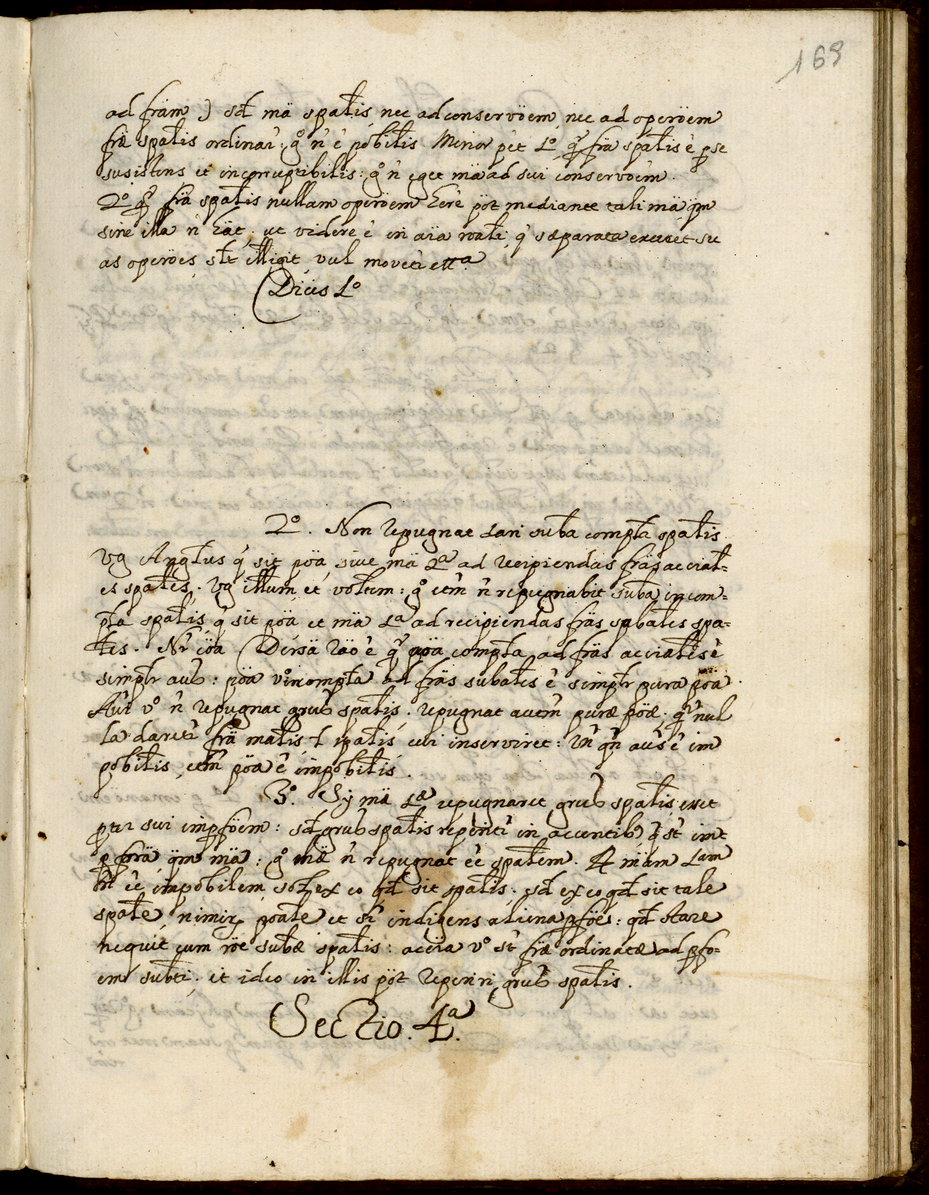 169
ad fr̃am) sd̃ mã spãtis nec ad conservõem nec ad operõem
fræ spãtis ordinar̃. gº ñ ẽ põbilis Minor pẽt 1º qã frã spãtis ẽ p se
susistens et incorruptibilis: gº ñ eget mã ad sui conservõem.
2º qã frã spãtis nullam operõem h̃ere põt mediante tali mã qm
sine illa ñ h̃at. ut videre ẽ in aĩa rõali q̃ sæparata exercet su
as operões st̃ illigit vul movet̃ ettª
Dices 1º
2º. Non repugnat dari suba compta spãtis
vg Angl̃us q̃ sit põa sive mã 2ª ad recipiendas frãs acciãt-
es spãtes. vg illum et volẽm: gº etm̃ ñ repugnabit suba incom-
pta spãtis q̃ sit põa et mã 1ª ad recipiendas frãs subãtes spa-
tes. Nr̃ cõa Disã rão ẽ qã põa compta ad frãs acciãtes ẽ
simptr aub: põa vº incompta ad frãs subãtes ẽ simptr pura põa.
Aũi vº ñ repugnat grub spãtis. repugnat autm̃ puræ põæ. qã nul
la daret̃ frã mãtis t̃ spãtis cui inserviret: un̂ qñ aus ẽ im
põbilis, etm̃ põa ẽ impõbilis.
3º. Sy mæ 1æ repugnaret grub spãtis esset
ptr sui impfõem: sd̃ grub spãtis reperit̃ in accentib q̃ st̃ imt
pfõra qm̃ mã: gº mæ ñ repugnat ẽe spãtem. A mãm 1am
ñ ẽe impõbilem sol ex eo qd̃ sit spãtis. sd̃ ex eo qd̃ sit tale
spãte nimir põate et sĩ indigens aliena pfõe: qd̃ stare
nequit cum rõe subæ spãtis: accia vº st̃ fræ ordinatæ ad pfo-
em subti. et ideo in illis põt reperiri grub spãtis.
Sectio. 4ª.